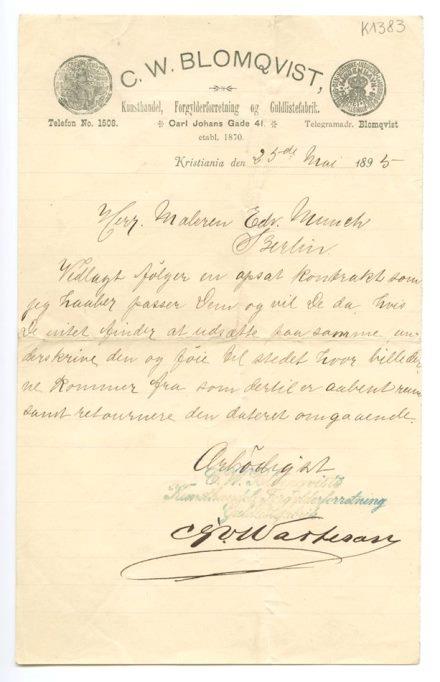 K1383
C. W. BLOMQVIST,
Kunsthandel, Forgylderforretning og Guldlistefabrik.
Telefon No. 1506. Carl Johans Gade 41. Telegramadr. Blomqvist
etabl. 1870.
Kristiania den 25de Mai 1895
Herr. Maleren Edv. Munch
Berlin
Vedlagt følger en opsat kontrakt som
jeg haaber passer Dem og vil De da, hvis
De intet finder at udsætte paa samme un-
derskrive den og føie til stedet hvor billeder-
ne kommer fra som dertil er aabent rum
samt retournere den dateret omgaaende.
Ærbødigst
C. W. Blomqvists
Kunsthandel, Forgylderforretning